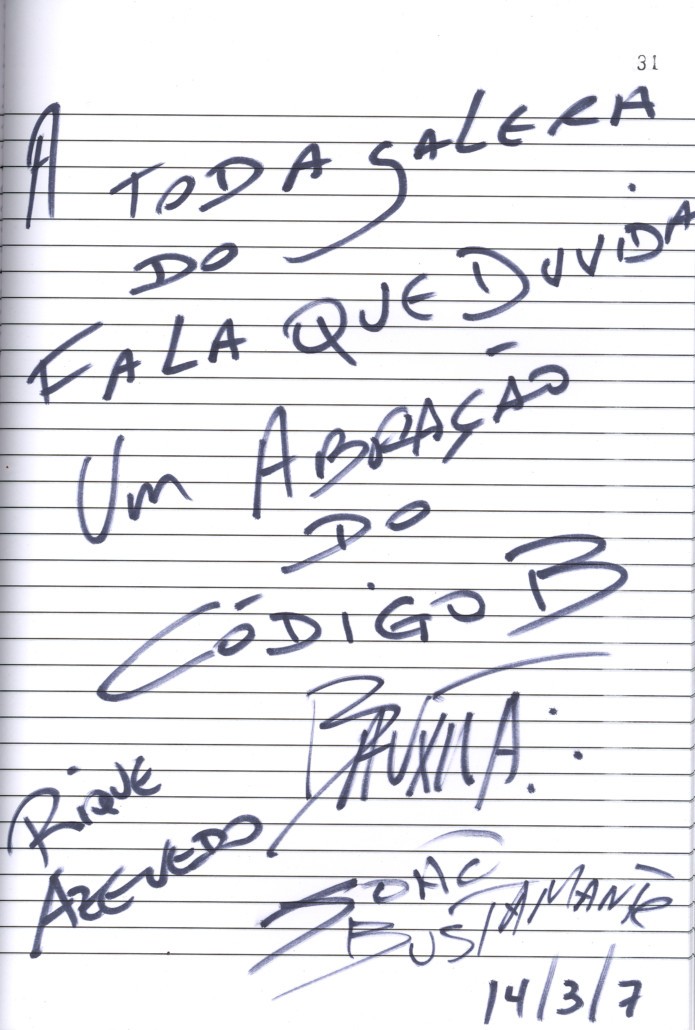 31
A TODA GALERA
DO
FALA QUE DUVIDA
Um ABRAÇÃO
DO
CÓDIGO B
BAUXITA
RIQUE
AZEVEDO
BUSTAMANTE
14/3/7